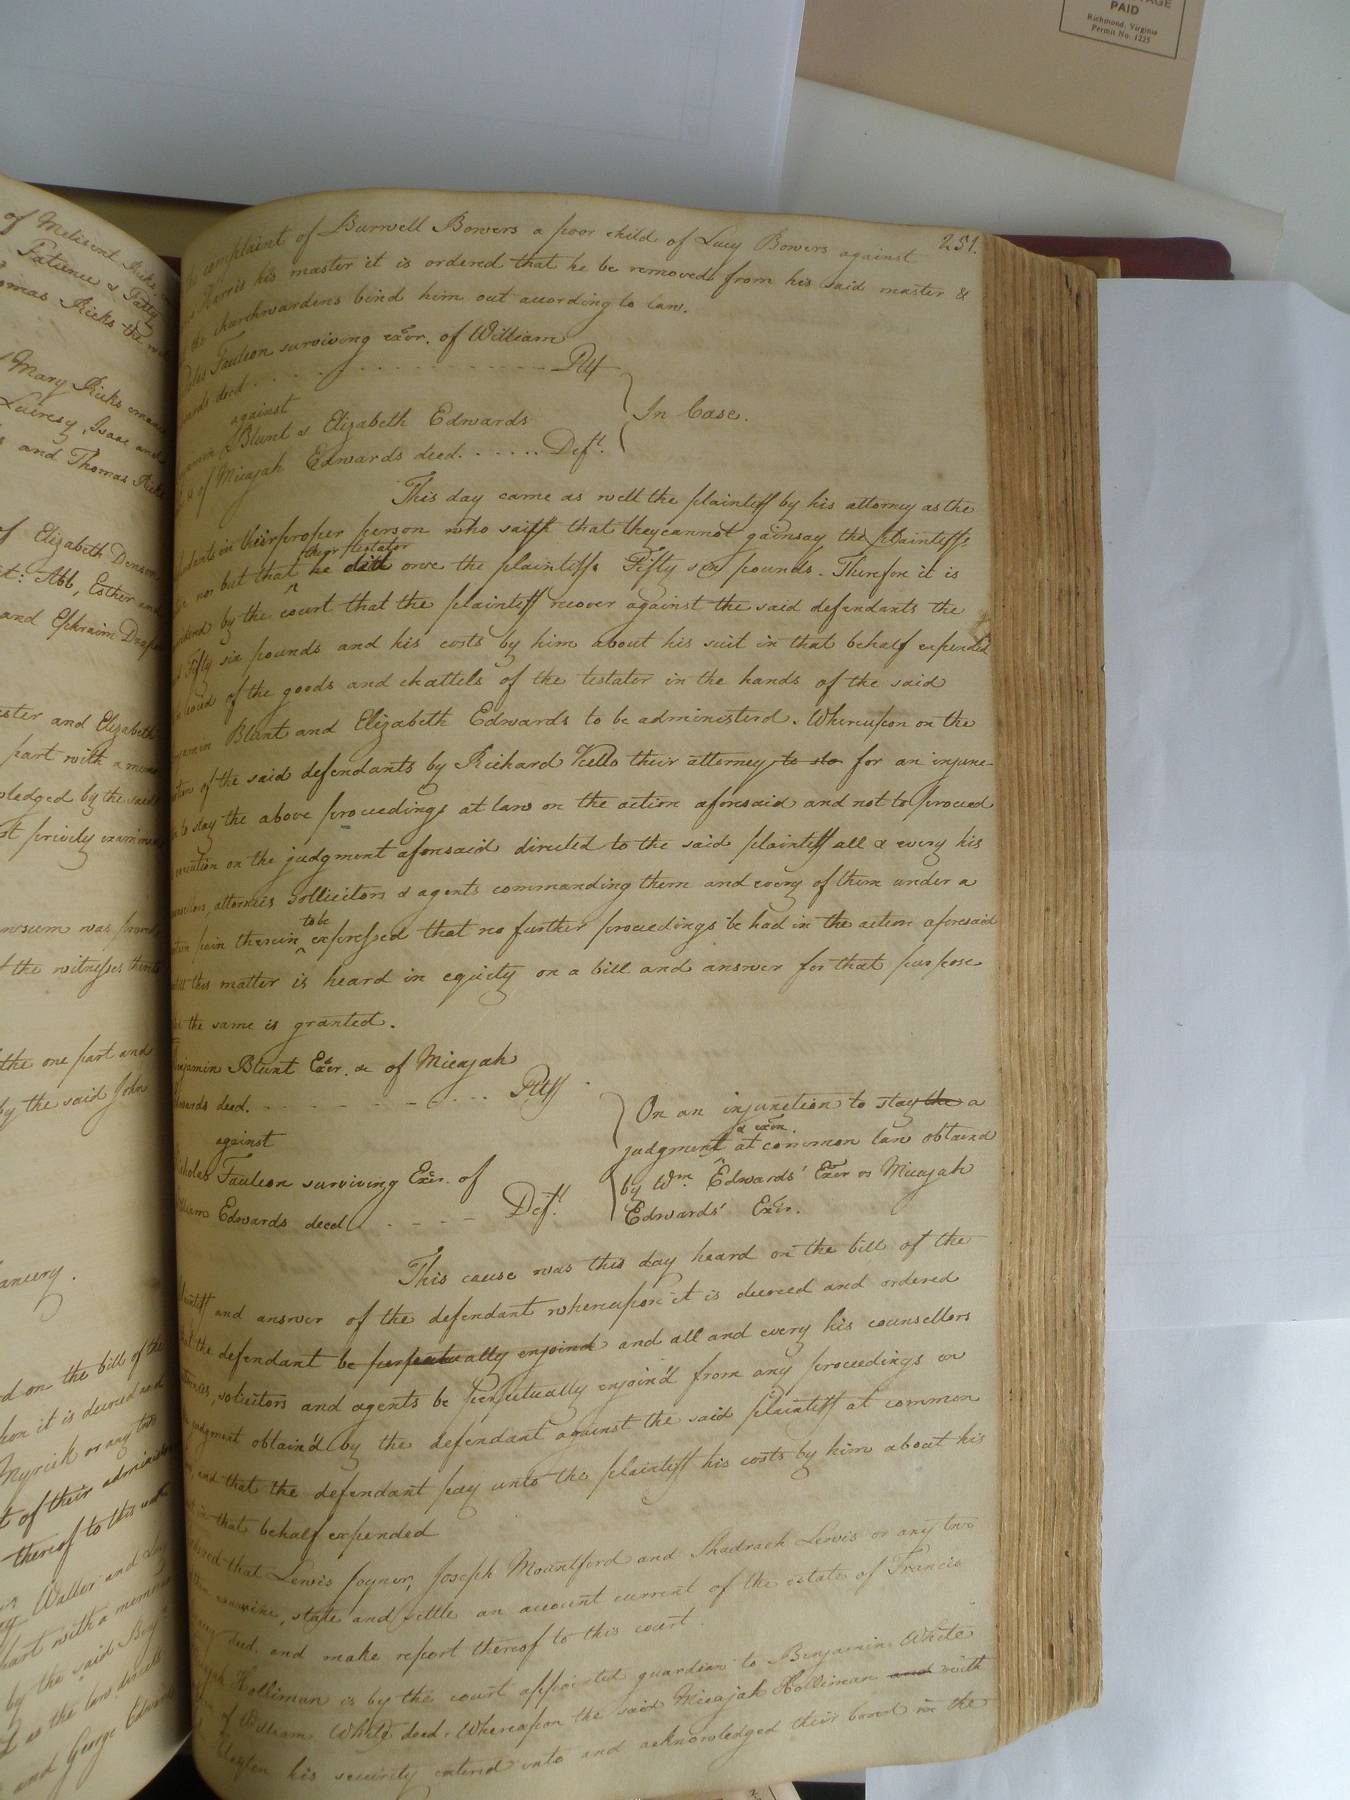 PAID
Richmond, Virginia
Permit No. 1225
251.
complaint of Burwell Bowers a poor child of Lucy Bowers against
Harris his master it is ordered that he be removed from his said master &
the churchwardens bind him out according to law.
Faulcon surviving exor. of William
deced. Plf
against
Blunt & Elizabeth Edwards
of Micajah Edwards deced. Deft.
In Case.
This day came as well the plaintiff by his attorney as the
in their proper person who saith that they cannot gainsay the plaintiffs
nor but that he doth owe the plaintiffs Fifty six pounds. Therefore it is
their testator
by the court that the plaintiff recover against the said defendants the
Fifty six pounds and his costs by him about his suit in that behalf expended
of the goods and chattels of the testator in the hands of the said
Blunt and Elizabeth Edwards to be administerd. Whereupon on the
of the said defendants by Richard Kello their attorney to sta for an injunc-
to stay the above proceedings at law on the action aforesaid and not to proceed
on the judgment aforesaid directed to the said plaintiff all & every his
attornies sollicitors & agents commanding them and every of them under a
pain therein to be expressed that no further proceedings be had in the action aforesaid
this matter is heard in equity on a bill and answer for that purpose
the same is granted.
Blunt Exor. &c of Micajah
deced. Pltff
against
Faulcon surviving Exer. of
Edwards deced Deft.
On an injunction to stay the a
judgment & exon. at common law obtaind
by Wm. Edwards' Exor vs Micajah
Edwards' Exor.
This cause was this day heard on the bill of the
and answer of the defendant whereupon it is decreed and ordered
the defendant be perpetually enjoind and all and every his counsellors
solicitors and agents be perpetually enjoin'd from any proceedings on
judgment obtain'd by the defendant against the said plaintiff at common
and that the defendant pay unto the plaintiff his costs by him about his
in that behalf expended
that Lewis Joyner, Joseph Mountford and Shadrach Lewis or any two
examine, state and settle an account current of the estate of Francis
deced. and make report thereof to this court.
Holliman is by the court appointed guardian to Benjamin White
of William White deced. Whereupon the said Micajah Holliman and with
Clayton his security entered into and acknowledged their bond in the
of Melicent Ricks,
Patience & Patty
Thomas Ricks the
Mary Ricks
Lucresy, Isaac and
and Thomas Ricks
of Elizabeth Denson
Abb, Esther and
and Ephraim
and Elizabeth
part with a
by the said
privily
was
the witnesses
the one part and
by the said John
on the bill of the
it is decreed and
Myrick or any two
of their
thereof to this
Waller and
part with a
by the said
as the law directs
and George